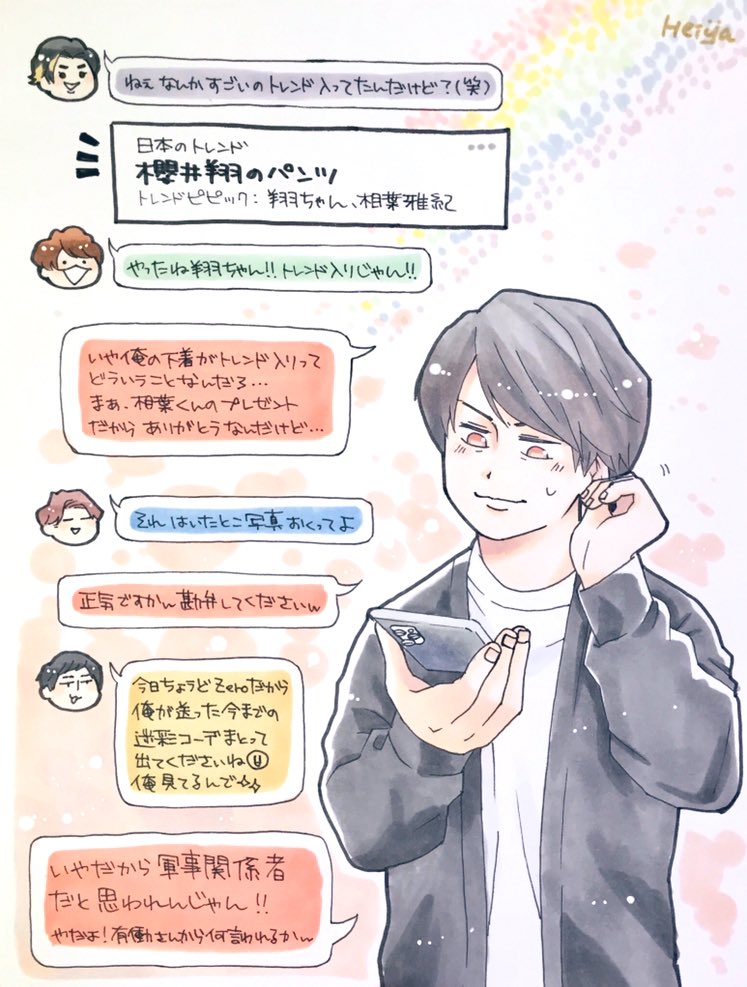 Heiya
ねぇ なんか すごいの トレンド 入ってたんだけど？(笑)
日本のトレンド
櫻井翔のパンツ
トレンドピピック：翔ちゃん、相葉雅紀
やったね翔ちゃん!! トレンド入りじゃん!!
いや俺の下着がトレンド入りって
どういうことなんだろ…
まぁ、相葉くんのプレゼント
だから ありがとうなんだけど…
それ はいたとこ 写真 おくってよ
正気ですかw 勘弁してくださいw
今日ちょうど Zeroだから
俺が送った今までの
迷彩コーデ まとって
出てくださいね
俺見てるんで
いやだから 軍事関係者
だと思われんじゃん!!
やだよ！有働さんから何言われるかw